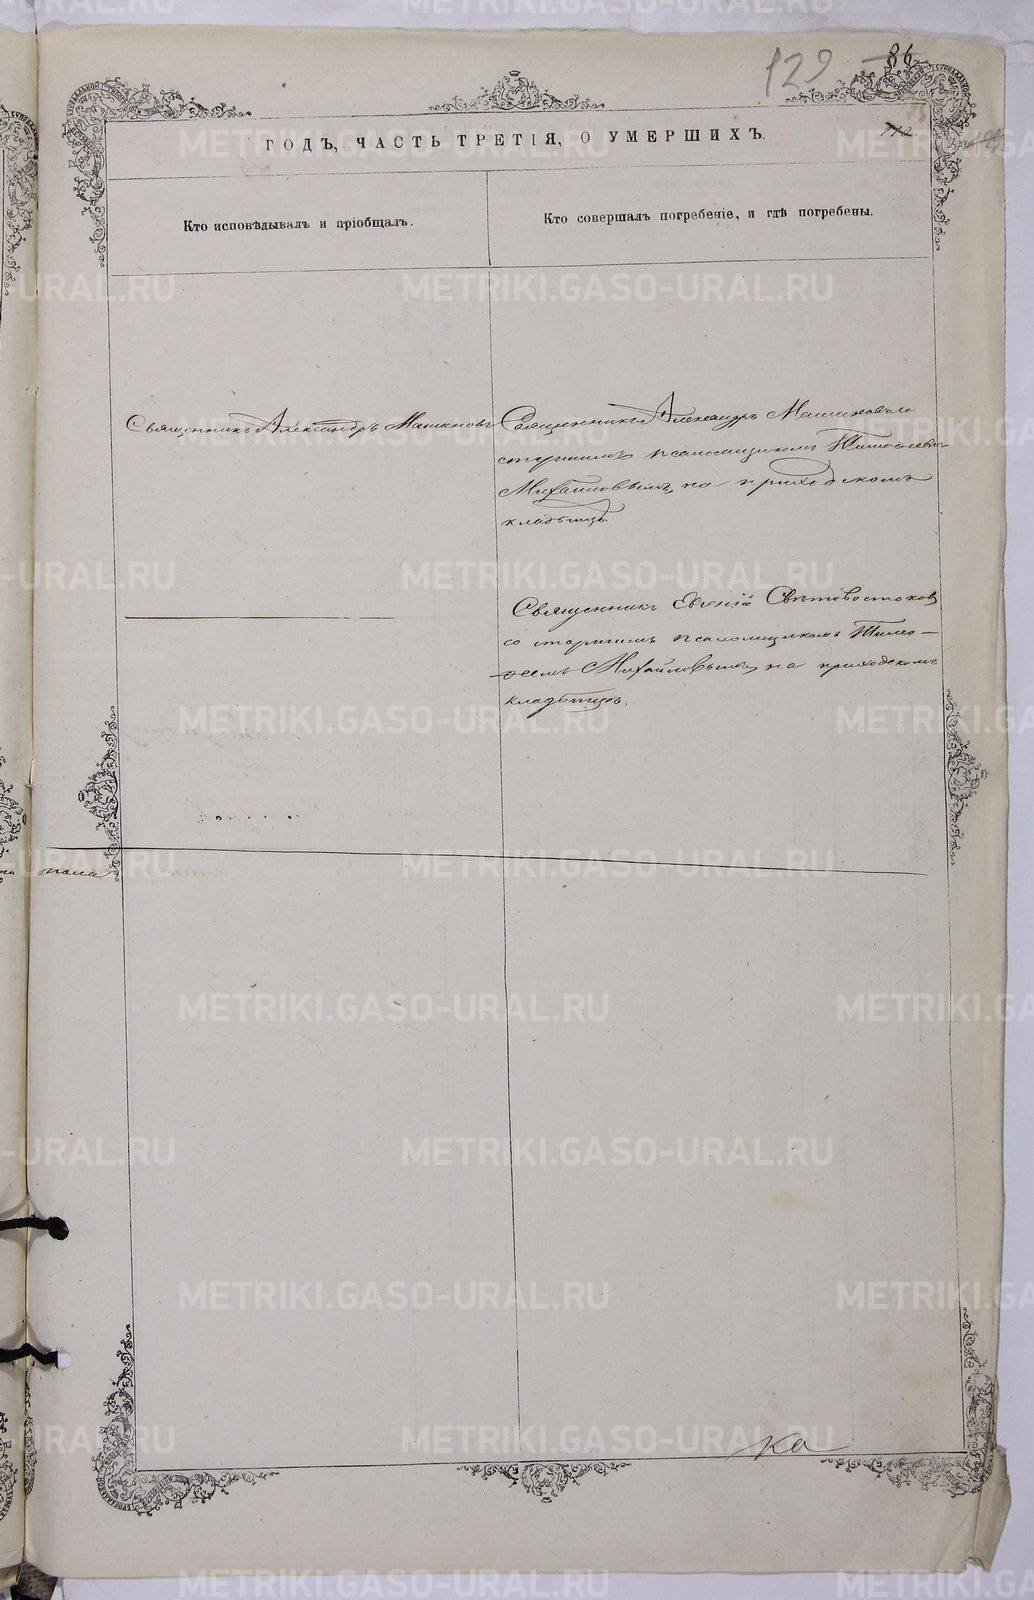 129
86
ГОДЪ, ЧАСТЬ ТРЕТІЯ, О УМЕРШИХЪ.
Кто исповѣдывалъ и пріобщалъ.
Кто совершалъ погребеніе, и гдѣ погребены.
Священникъ Александръ
Священникъ Александръ
старшимъ псаломщикомъ
Михайловымъ, на приходскомъ
кладбищѣ.
Священникъ Евгеній Свѣтовостоковъ
со старшимъ псаломщикомъ Тимо-
ѳеемъ Михайловымъ, на приходскомъ
кладбищѣ.
пола
ка
METRIKI.GASO-URAL.RU